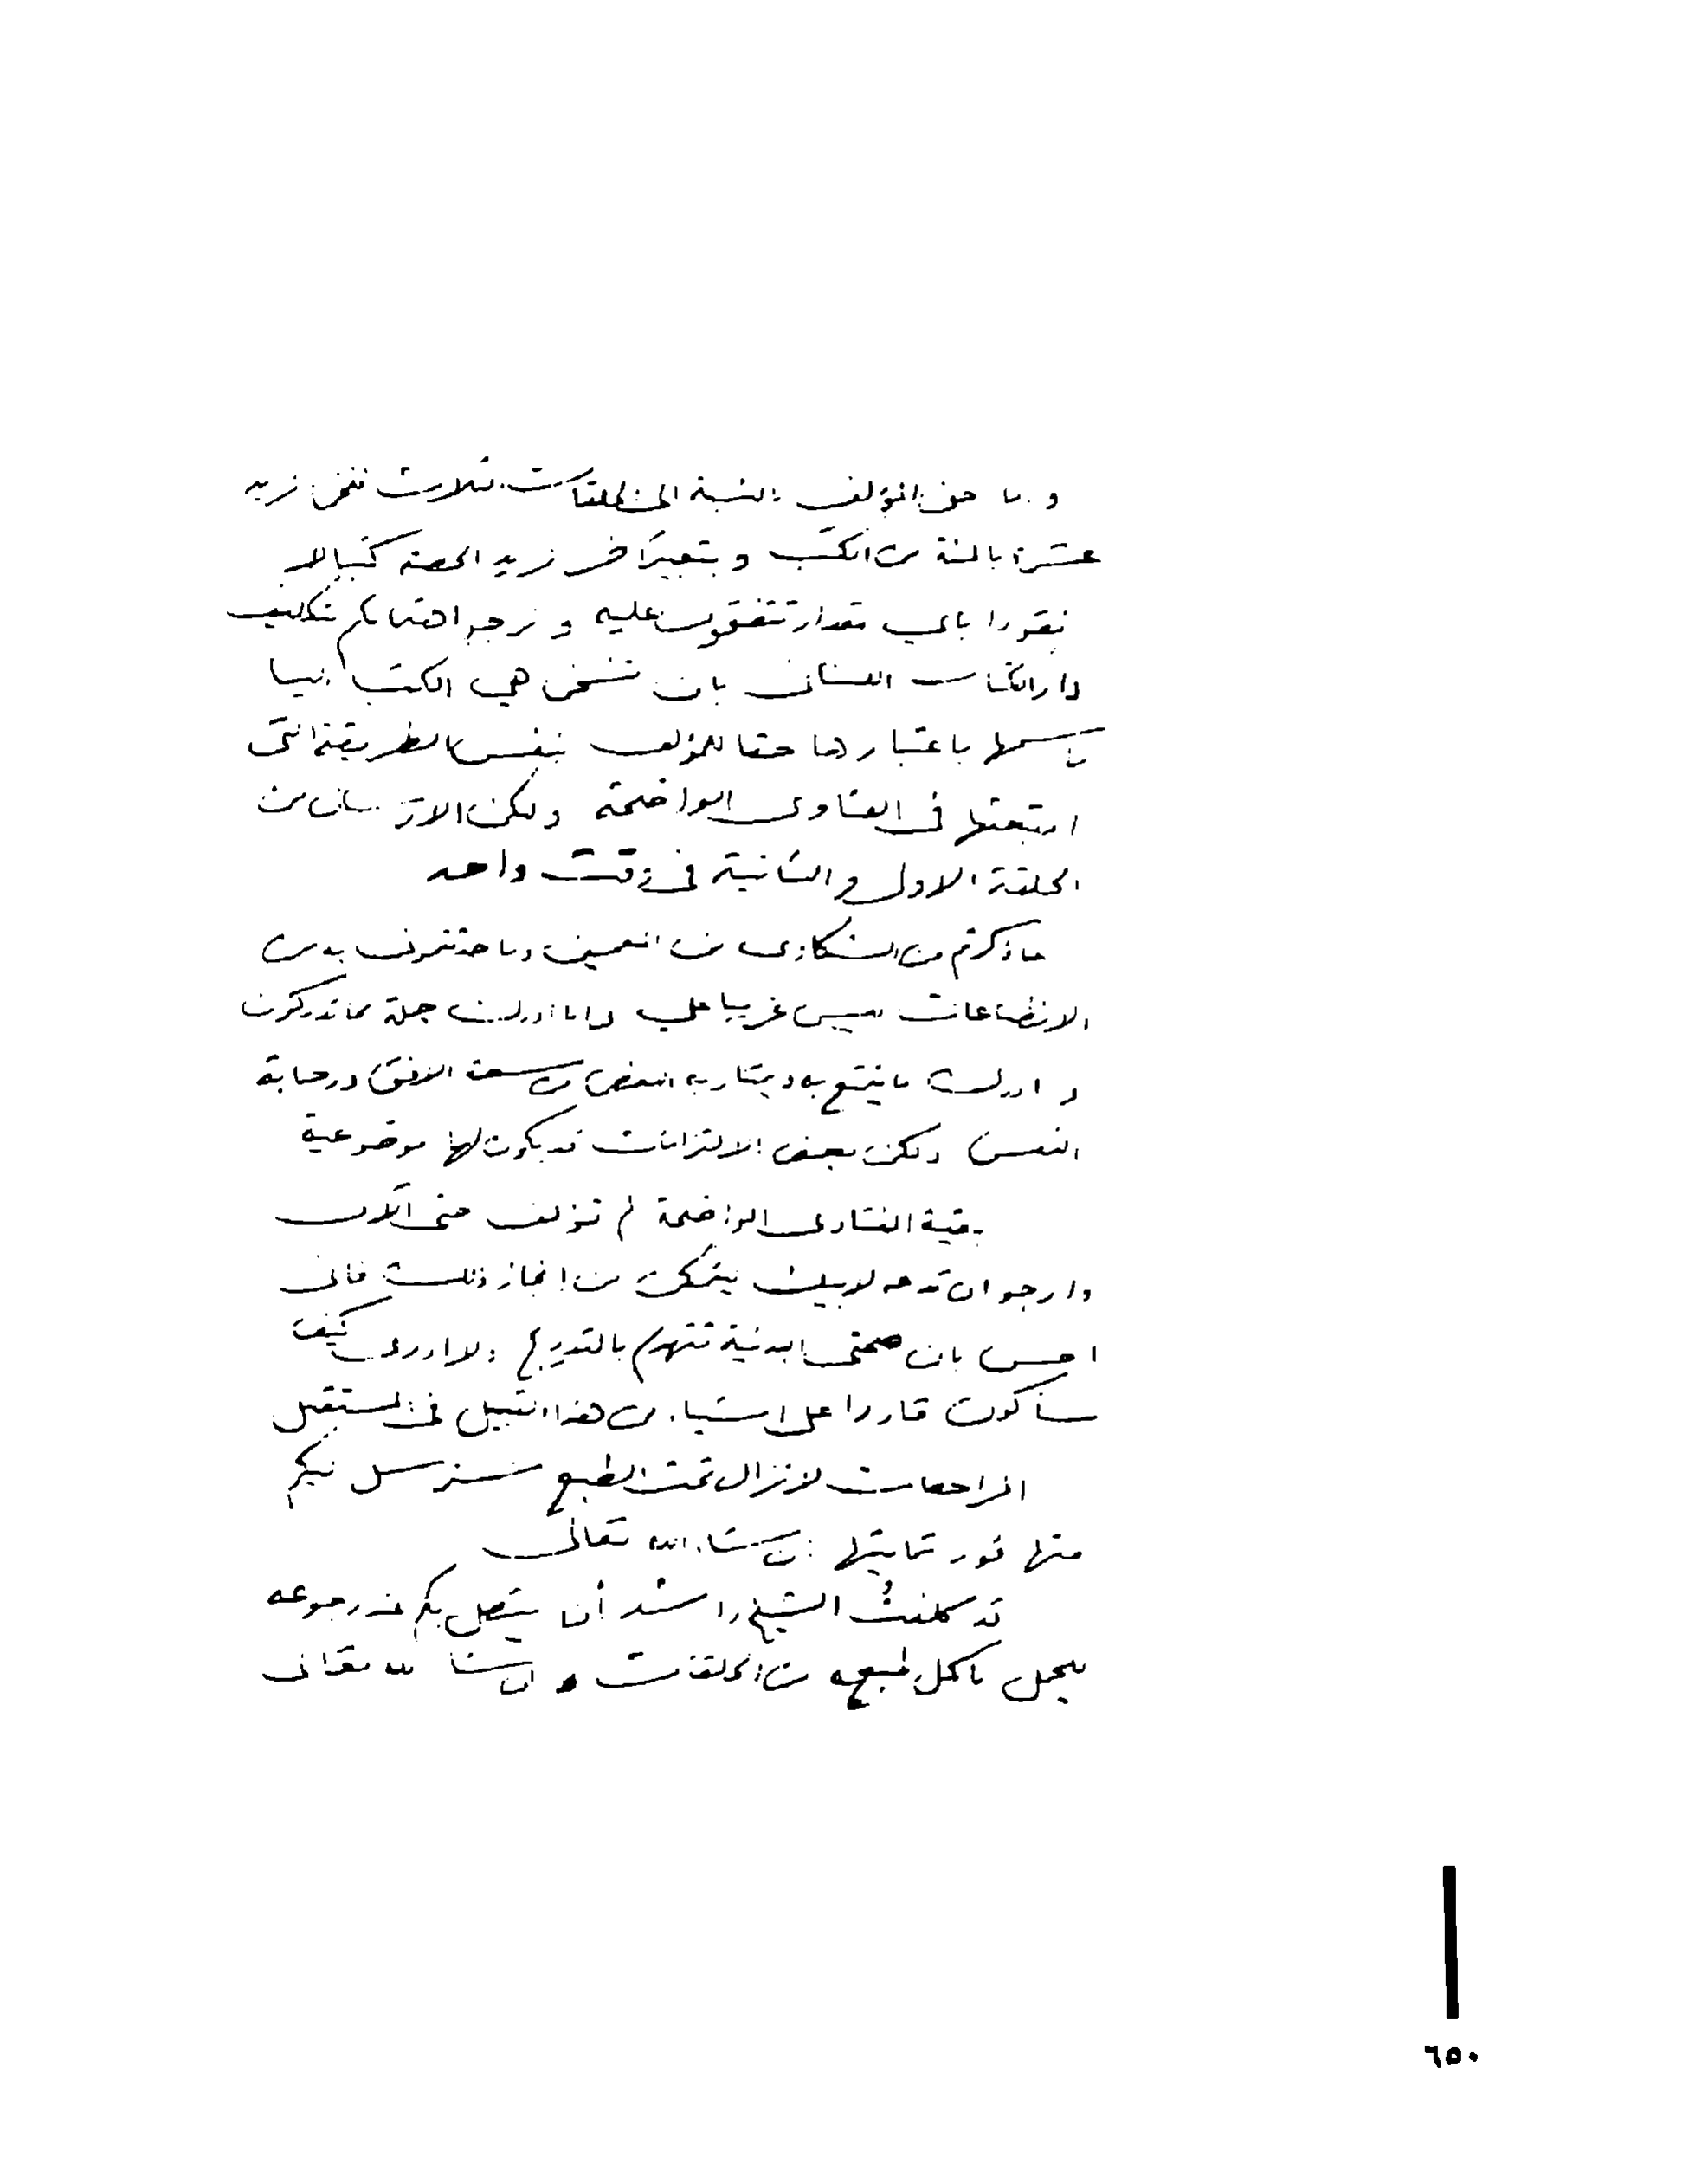 و ما حق المؤلف بالنسبة الى الحلقات الثلاث فنحن نريد
عشرة بالمئة من الكتب و بتعبير آخر نريد الحصة كتبا لا
نقودا باي مقدار تتفقون عليه و نرجو اهتمامكم بتكليف
دار الكتاب اللبناني بان تشحن هي الكتب الينا
باسمها باعتبارها حقا للمؤلف بنفس الطريقة التي
اتبعتها في الفتاوى الواضحة ولكن الارسال من
الحلقة الاولى والثانية في وقت واحد
ما ذكرتم من الشكاوى من المعممين وما تتمزقون به من
الانطباعات ليس غريبا علي وانا ادرك جملة مما تدركون
و ادرك ما يتمتع به ويمتاز به البعض من سعة الافق ورحابة
النفس ولكن بعض الالتزامات قد يكون لها موضوعية
بقية الفتاوى الواضحة لم تؤلف حتى الآن
وارجو ان تدعو لابيك ليتمكن من انجاز ذلك فاني
احس بان صحتي البدنية تنهدم بالتدريج ولا ادري كيف
سأكون قادرا على اشياء من هذا القبيل في المستقبل
المراجعات لا تزال تحت الطبع سنرسل اليكم
منها فور تماميتها ان شاء الله تعالى
قد كلفتُ الشيخ راشد أن يتصل بكم عند رجوعه
ليحمل ما كمل طبعه من الحلقات ان شاء الله تعالى
٦٥٠